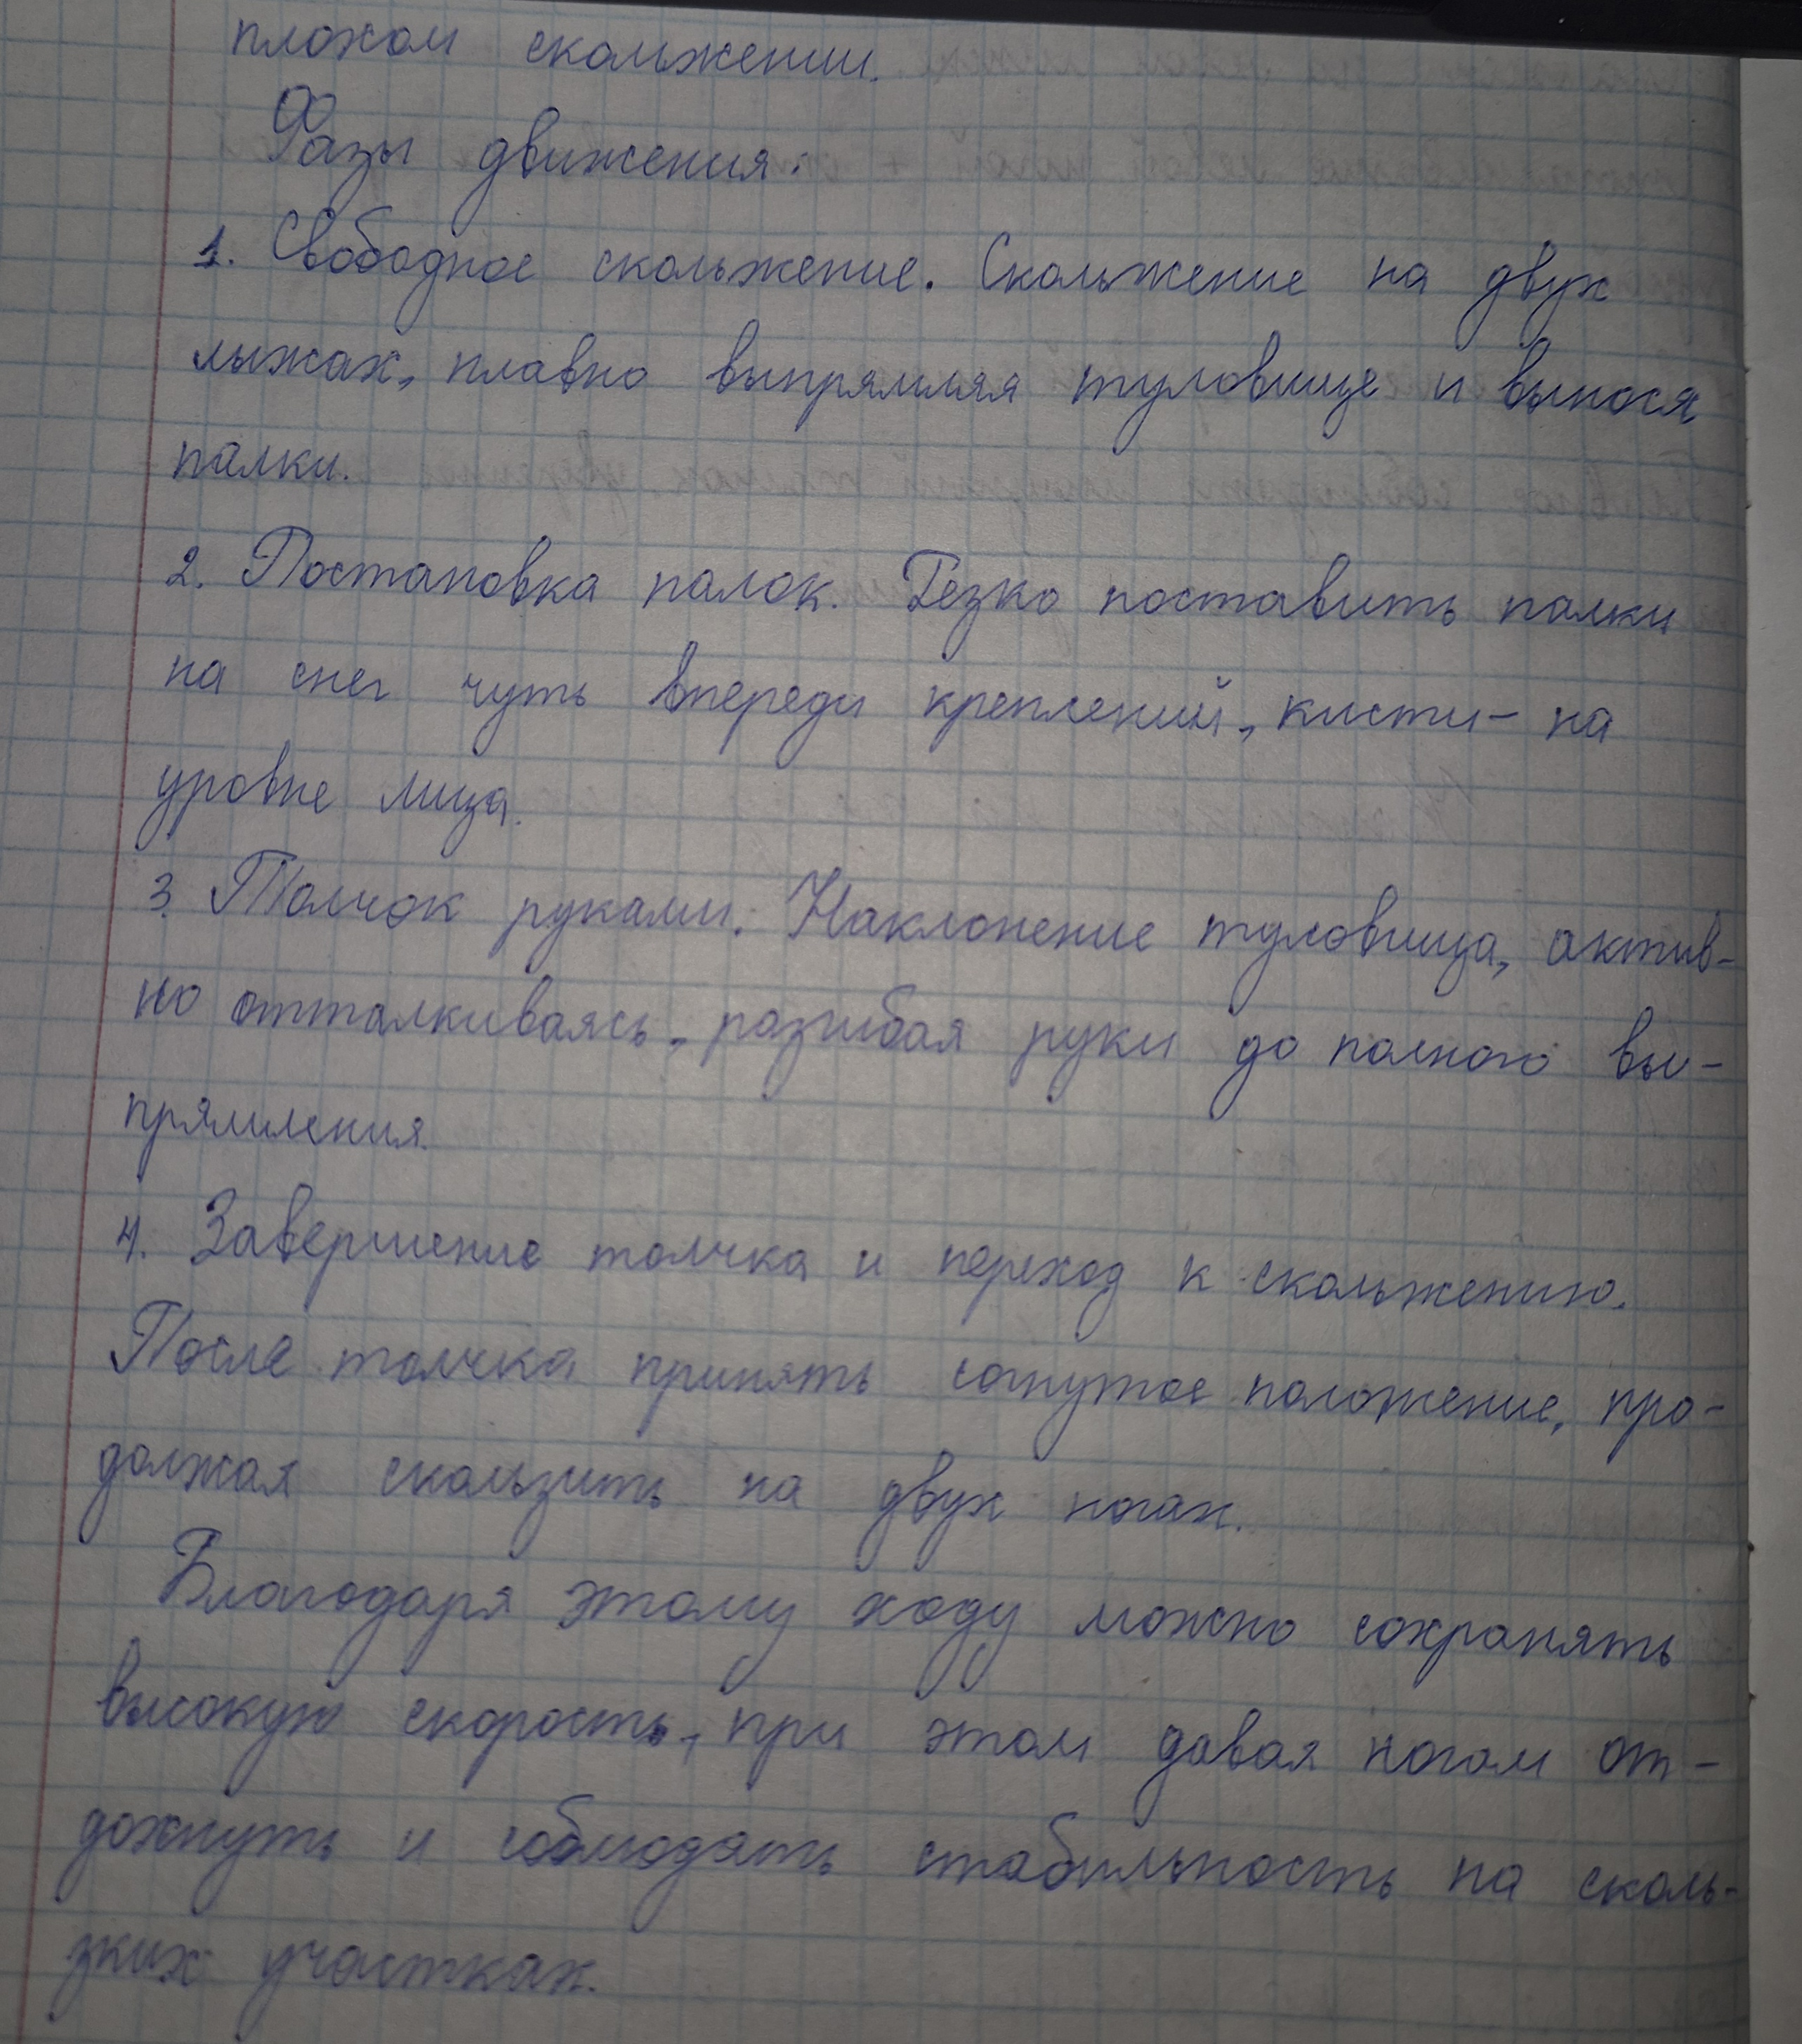 плохом скольжении.
Фазы движения:
1. Свободное скольжение. Скольжение на двух
лыжах, плавно выпрямляя туловище и вынося
палки.
2. Постановка палок. Резко поставить палки
на снег чуть впереди креплений, кисти - на
уровне лица.
3. Толчок руками. Наклонение туловища, актив-
но отталкиваясь, разгибая руки до полного вы-
прямления.
4. Завершение толчка и переход к скольжению.
После толчка принять согнутое положение, про-
должая скользить на двух ногах.
Благодаря этому ходу можно сохранять
высокую скорость, при этом давая ногам от-
дохнуть и соблюдать стабильность на сколь-
зких участках.